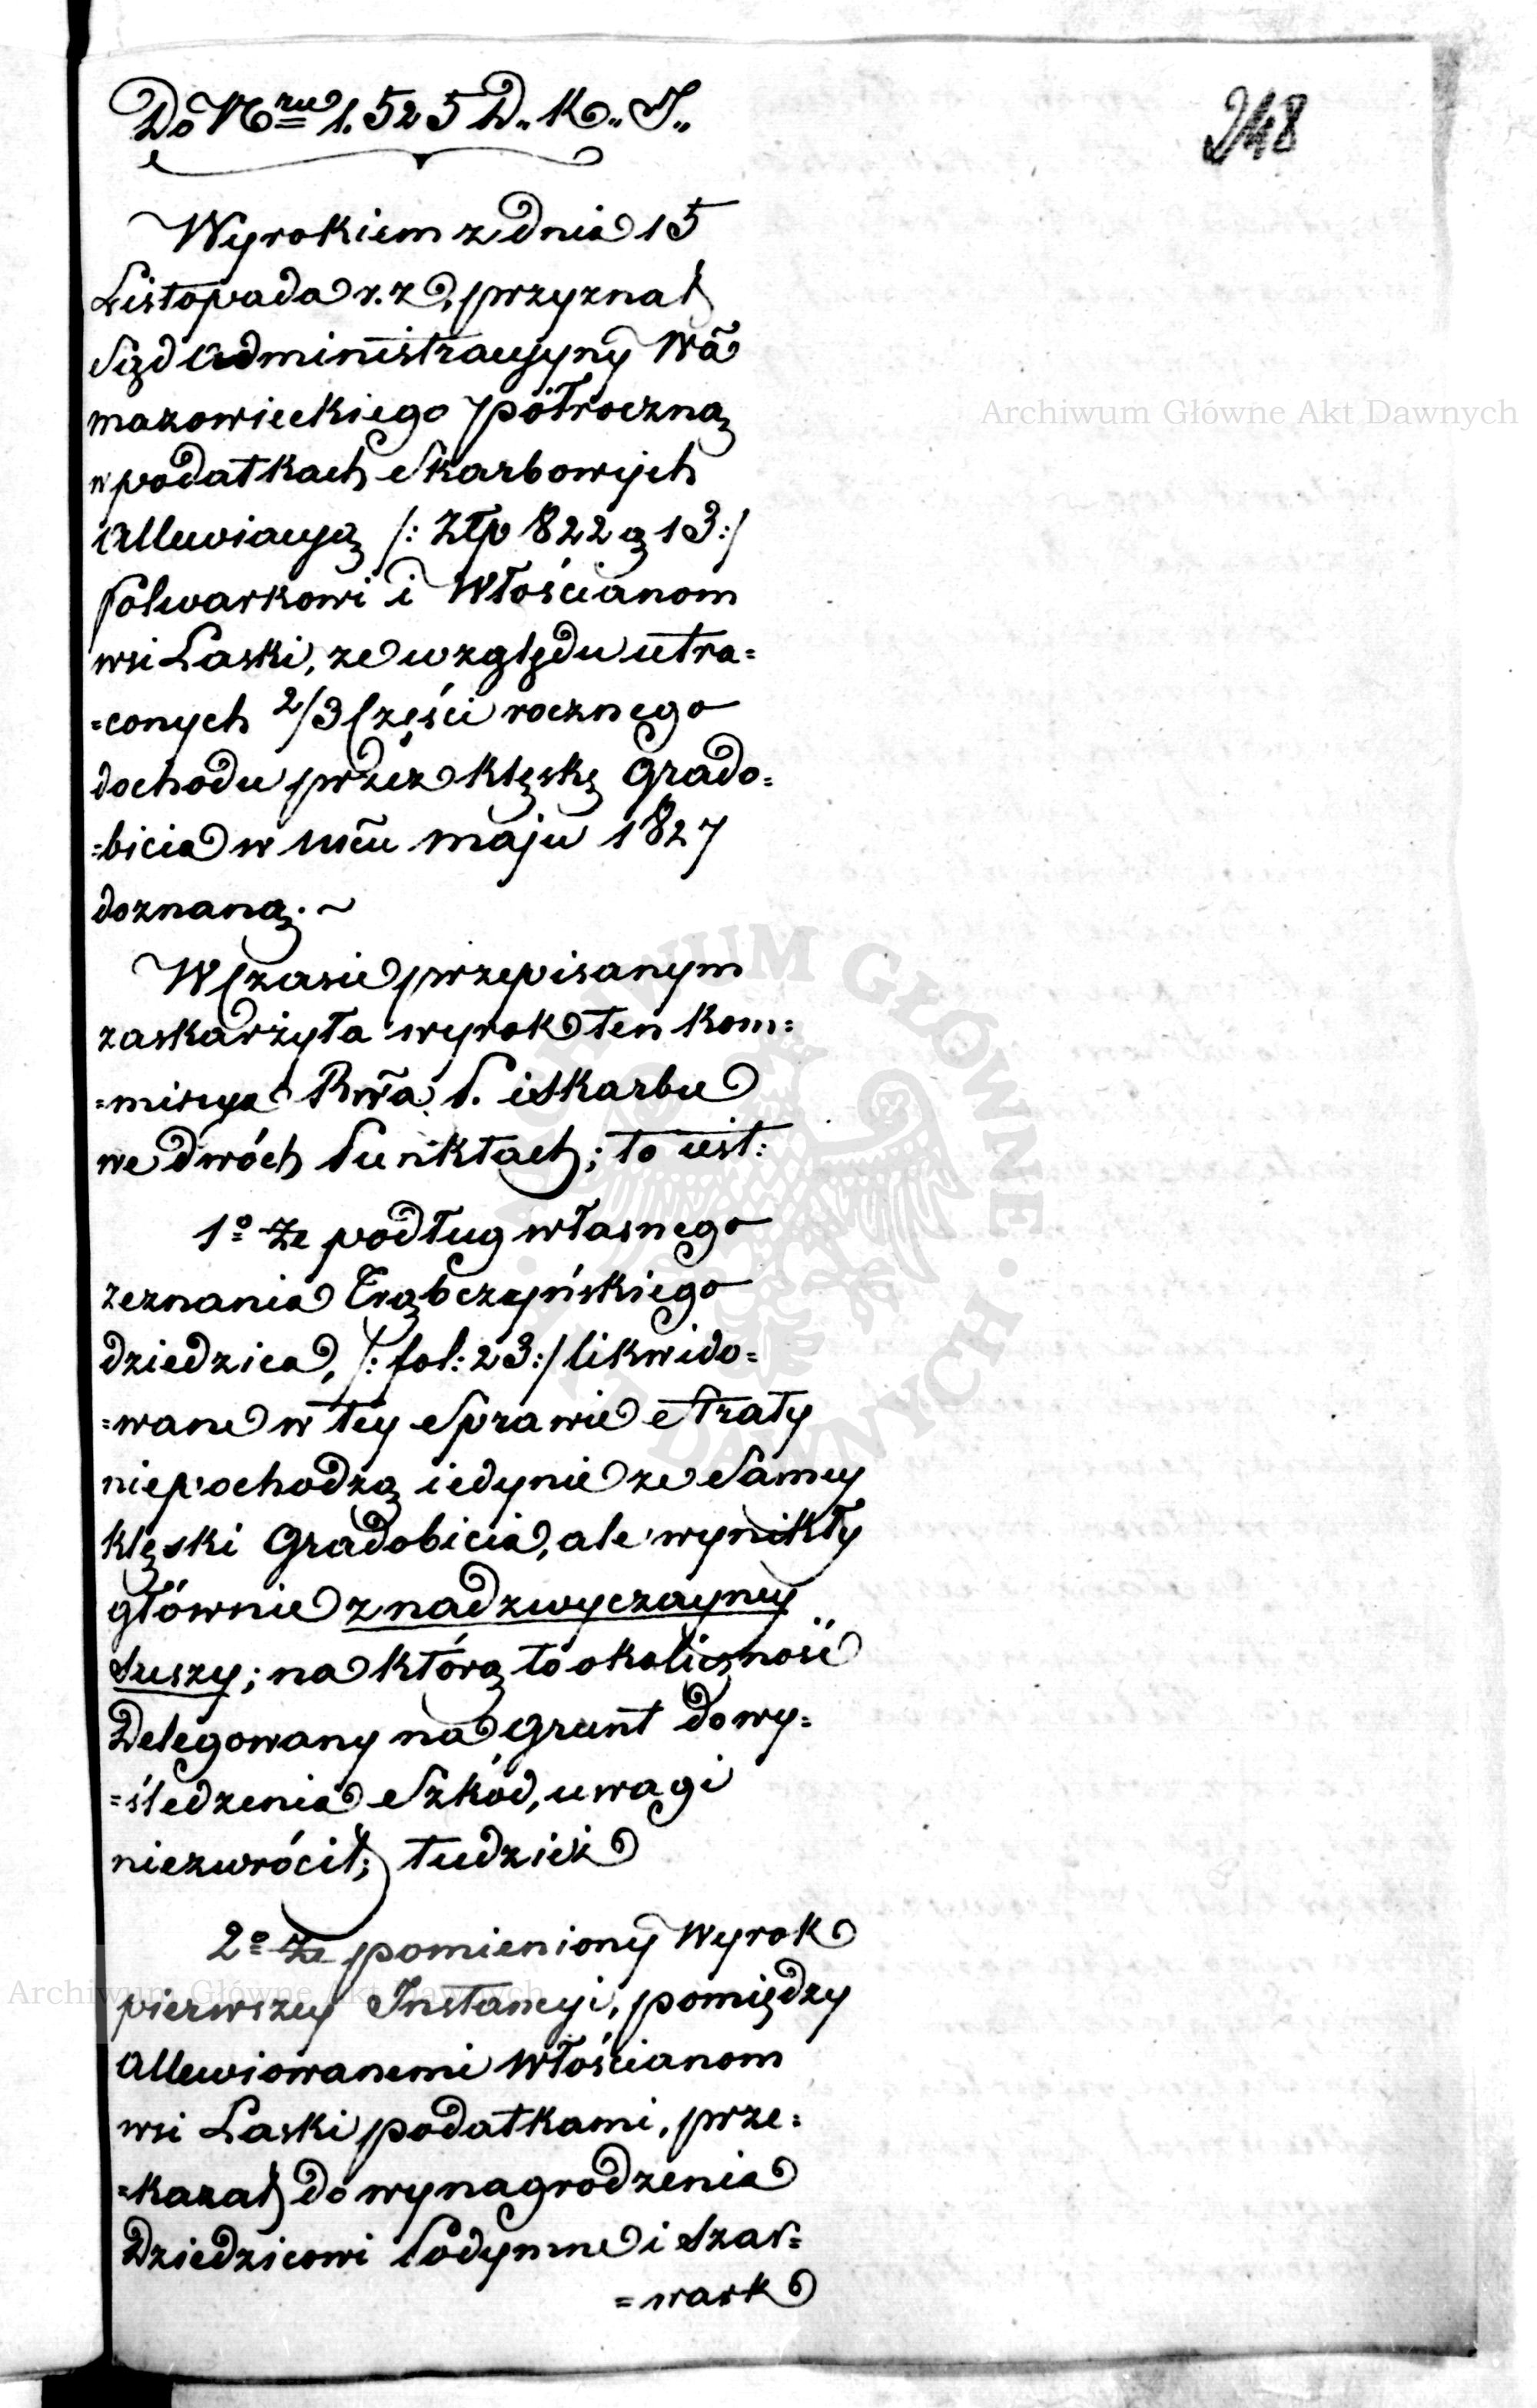 Do Nru 1.525 D. K. J.
248
Wyrokiem z dnia 15
Listopada r. z. przyznał
Sąd Administracyjny Wa
mazowieckiego półroczną
w podatkach Skarbowych
allewiacyą /: Złp 822 g 13:/
folwarkowi i Włościanom
wsi Laski, ze względu utra=
=conych 2/3 Części rocznego
dochodu przez klęskę Grado=
=bicia w mcu maju 1827
doznaną. ~
W Czasie przepisanym
zaskarżyła wyrok ten Kom=
=missya Rwa P. i Skarbu
we dwóch Punktach; to iest:
1o Że podług własnego
zeznania Trąbczyńskiego
dziedzica, /: fol: 23:/ likwido=
=wane w tey Sprawie Straty
niepochodzą iedynie ze Samey
klęski Gradobicia, ale wynikły
głównie z nadzwyczayney
Suszy; na którą to okoliczność
Delegowany na grunt do wy=
=śledzenia Szkód, uwagi
niezwrócił; tudzież
2o Że pomieniony Wyrok
pierwszey Instancyi, pomiędzy
allewiowanemi Włościanom
wsi Laski podatkami, prze=
=kazał do wynagrodzenia
Dziedzicowi Podymne i Szar=
=wark
Archiwum Główne Akt Dawnych
Archiwum Główne Akt Dawnych
ARCHIWUM GŁÓWNE AKT DAWNYCH